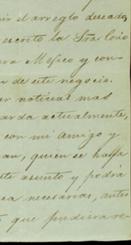 el arreglo deseado
escrito la Sra.
para Mejico y con
de este negocio.
noticias mas
guarda actualmente,
con mi Amigo y
quien se halla
este asunto y podra
necesarias, antes
que